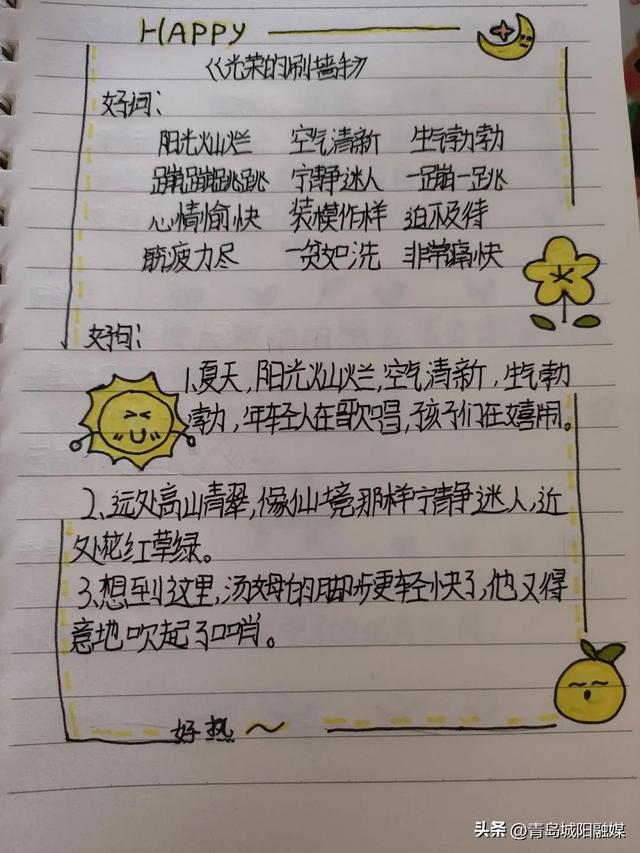 HAPPY
《光荣的刷墙手》
好词：
阳光灿烂 空气清新 生气勃勃
蹦蹦跳跳 宁静迷人 一蹦一跳
心情愉快 装模作样 迫不及待
筋疲力尽 一贫如洗 非常痛快
好句：
1、夏天，阳光灿烂，空气清新，生气勃
勃，年轻人在歌唱，孩子们在嬉闹。
2、远处高山青翠，像仙境那样宁静迷人，近
处花红草绿。
3、想到这里，汤姆的脚步更轻快了，他又得
意地吹起了口哨。
好热～
头条 @青岛城阳融媒